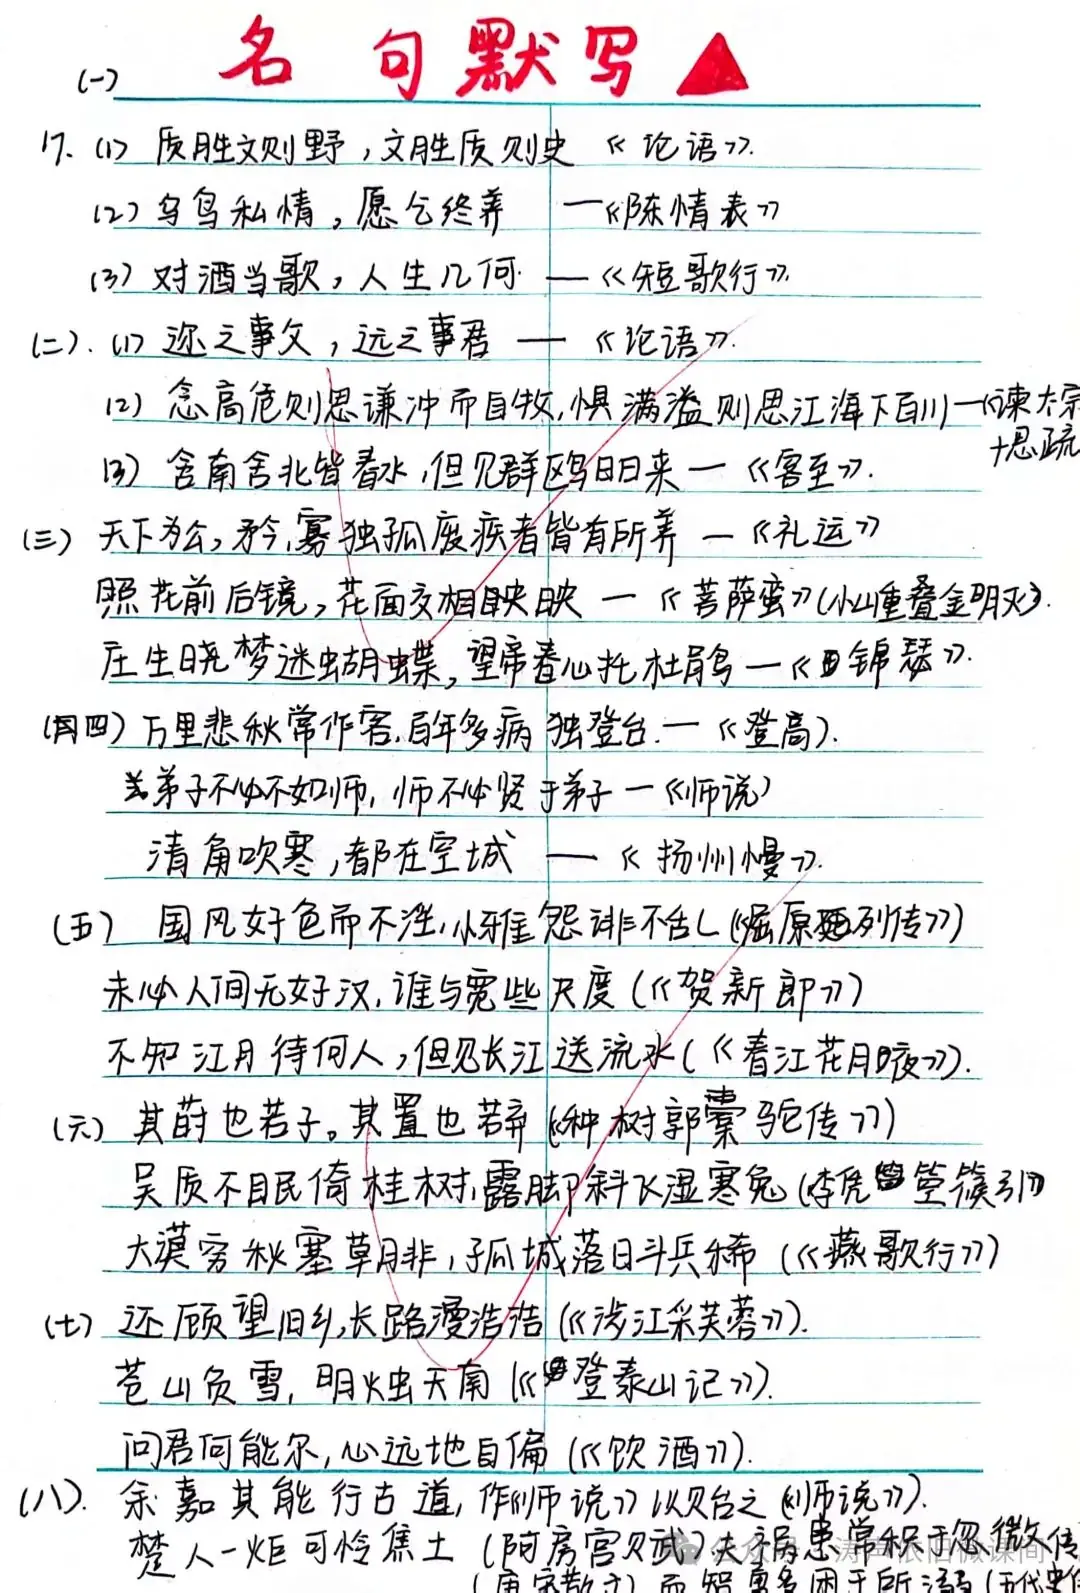 名句默写
(一)
17. (1) 质胜文则野，文胜质则史《论语》.
(2) 乌鸟私情，愿乞终养 —《陈情表》
(3) 对酒当歌，人生几何. —《短歌行》.
(二). (1) 迩之事父，远之事君 —《论语》.
(2) 念高危则思谦冲而自牧，惧满溢则思江海下百川—《谏太宗
十思疏
(3) 舍南舍北皆春水，但见群鸥日日来—《客至》.
(三) 天下为公，矜，寡独孤废疾者皆有所养 —《礼运》
照花前后镜，花面交相映 —《菩萨蛮》(小山重叠金明灭).
庄生晓梦迷蝴蝶，望帝春心托杜鹃 —《锦瑟》.
(四) 万里悲秋常作客，百年多病独登台. —《登高).
弟子不必不如师，师不必贤于弟子 —《师说)
清角吹寒，都在空城 —《扬州慢》.
(五) 国风好色而不淫，小雅怨诽不乱(《屈原列传》)
未必人间无好汉，谁与宽些尺度(《贺新郎》)
不知江月待何人，但见长江送流水(《春江花月夜》).
(六) 其莳也若子。其置也若弃(《种树郭橐驼传》)
吴质不眠倚桂树，露脚斜飞湿寒兔(李凭箜篌引》)
大漠穷秋塞草腓，孤城落日斗兵稀(《燕歌行》)
(七) 还顾望旧乡，长路漫浩浩(《涉江采芙蓉》).
苍山负雪，明烛天南(《登泰山记》).
问君何能尔，心远地自偏(《饮酒》).
(八). 余嘉其能行古道，作《师说》以贻之(《师说》).
楚人一炬可怜焦土(阿房宫赋)夫祸患常积于忽微(伶
而智勇多困于所溺(五代史
公众号·涛声依旧微课间